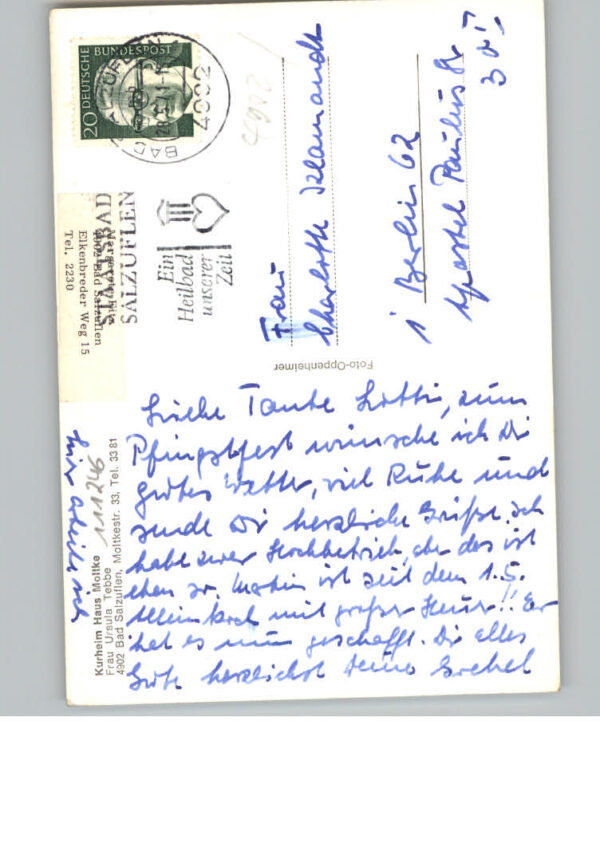 DEUTSCHE BUNDESPOST
20
BAD SALZUFLEN
28.5.71-1
4902
4902
STAATSBAD
SALZUFLEN
Ein
Heilbad
unserer
Zeit
4902 Bad Salzuflen
Elkenbreder Weg 15
Tel. 2230
Frau
Charlotte
1 Berlin 62
Apostel Paulus Str
3
Foto-Oppenheimer
Liebe Tante Lotti, zum
Pfingstfest wünsche ich Dir
gutes Wetter, viel Ruhe und
sende Dir herzliche Grüße. Ich
habe zwar Hochbetrieb, aber das ist
eben so. Martin ist seit dem 1.5.
Alleinkoch mit großer Heuer!! Er
hat es nun geschafft. Dir alles
Gute herzlichst Deine
hier arbeite ich
111246
Kurheim Haus Moltke
Frau Ursula Tebbe
4902 Bad Salzuflen, Moltkestr. 33, Tel. 33 81